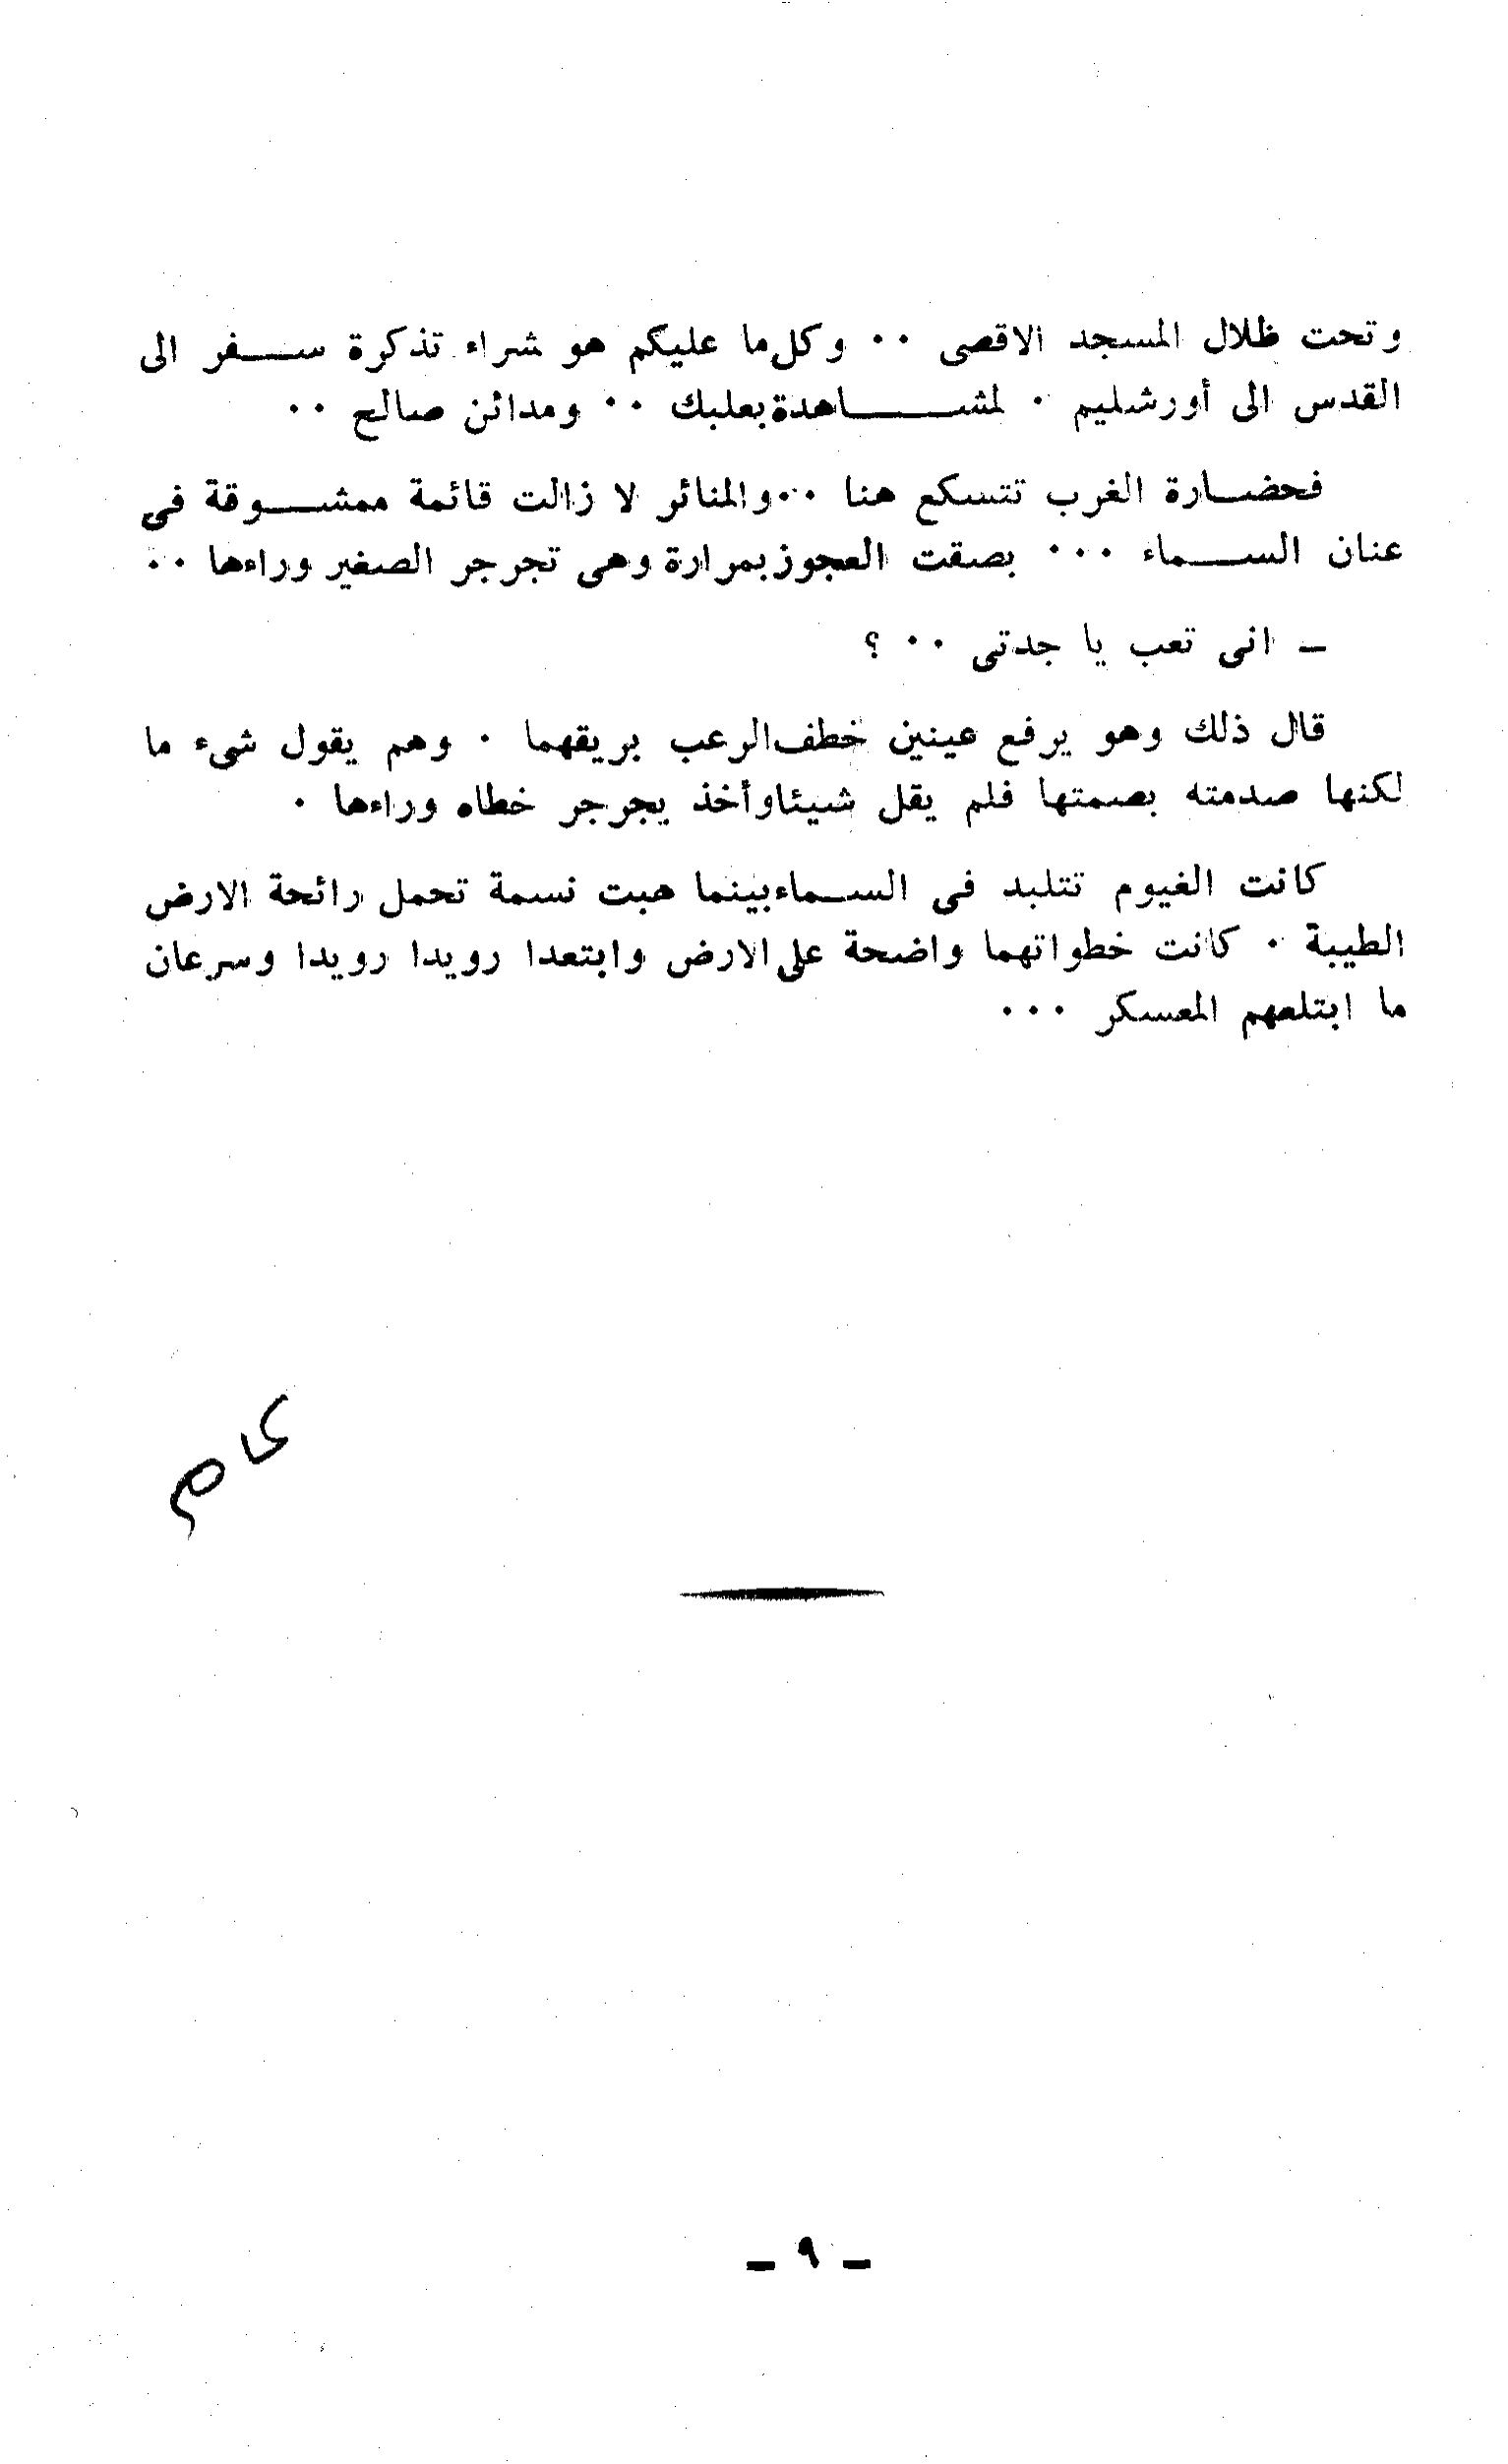 وتحت ظلال المسجد الاقصى ٠٠ وكل ما عليكم هو شراء تذكرة سفر الى
القدس الى أورشليم ٠ لمشاهدة بعلبك ٠٠ ومدائن صالح ٠٠
فحضارة الغرب تتسكع هنا ٠٠٠ والمنائر لا زالت قائمة ممشوقة فى
عنان السماء ٠٠٠ بصقت العجوز بمرارة وهى تجرجر الصغير وراءها ٠٠
ـ انى تعب يا جدتى ٠٠ ؟
قال ذلك وهو يرفع عينين خطف الرعب بريقهما ٠ وهم يقول شىء ما
لكنها صدمته بصمتها فلم يقل شيئا وأخذ يجرجر خطاه وراءها ٠
كانت الغيوم تتلبد فى السماء بينما هبت نسمة تحمل رائحة الارض
الطيبة ٠ كانت خطواتهما واضحة على الارض وابتعدا رويدا رويدا وسرعان
ما ابتلعهم المعسكر ٠٠٠
ـ ٩ ـ